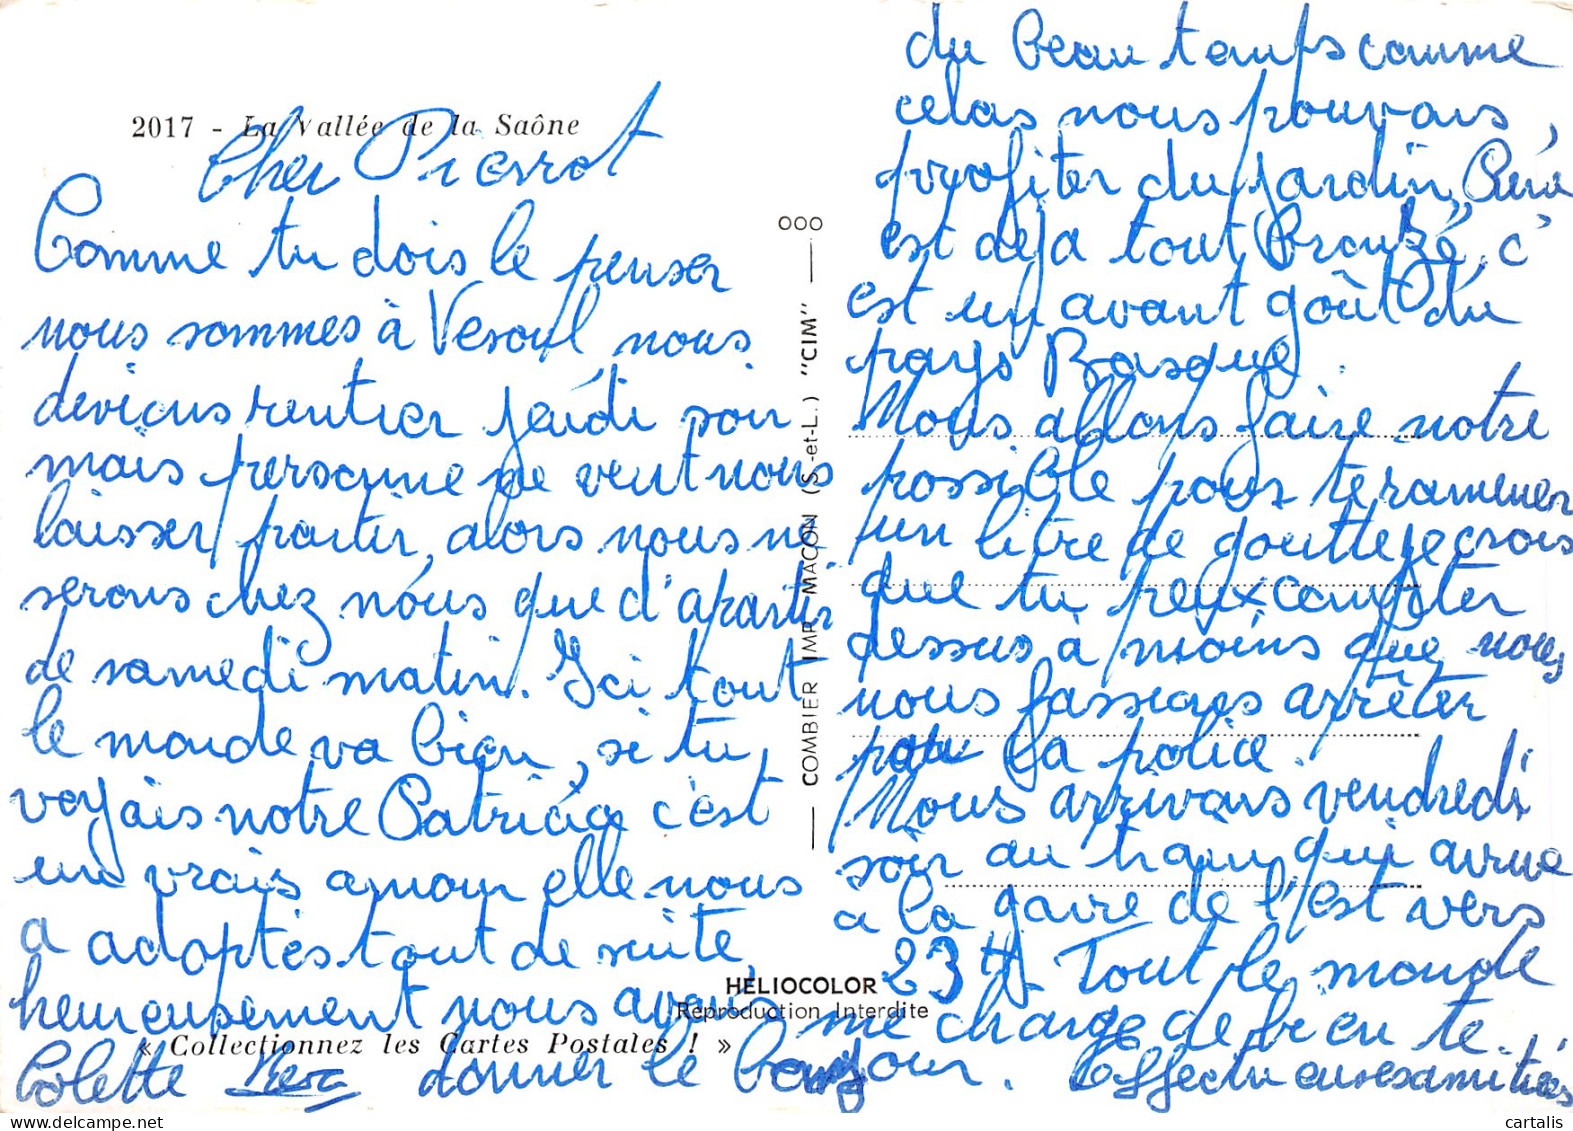 2017 - La Vallée de la Saône
Cher Pierrot
Comme tu dois le penser
nous sommes à Vesoul nous
devions rentrer jeudi soir
mais personne ne veut nous
laisser partir, alors nous ne
serons chez nous que d'apartir
de samedi matin. Ici tout
le monde va bien, si tu
voyais notre Patricia c'est
un vrais amour elle nous
a adoptés tout de suite,
heureusement nous avons
du beau temps comme
celas nous pouvons
profiter du jardin,
est déja tout bronzé, c'
est un avant goût du
pays Basque.
Nous allons faire notre
possible pour te ramener
un litre de goutte je crois
que tu peux compter
dessus à moins que nous
nous fassions arrêter
par la police.
Nous arrivons vendredi
soir au train qui arrive
a la gare de l'Est vers
23 H Tout le monde
me charge de bien te
donner le bonjour. Affectueuses amitiés
Colette
COMBIER IMP. MACON (S.-et-L.) "CIM"
HELIOCOLOR
Reproduction Interdite
« Collectionnez les Cartes Postales ! »
cartalis